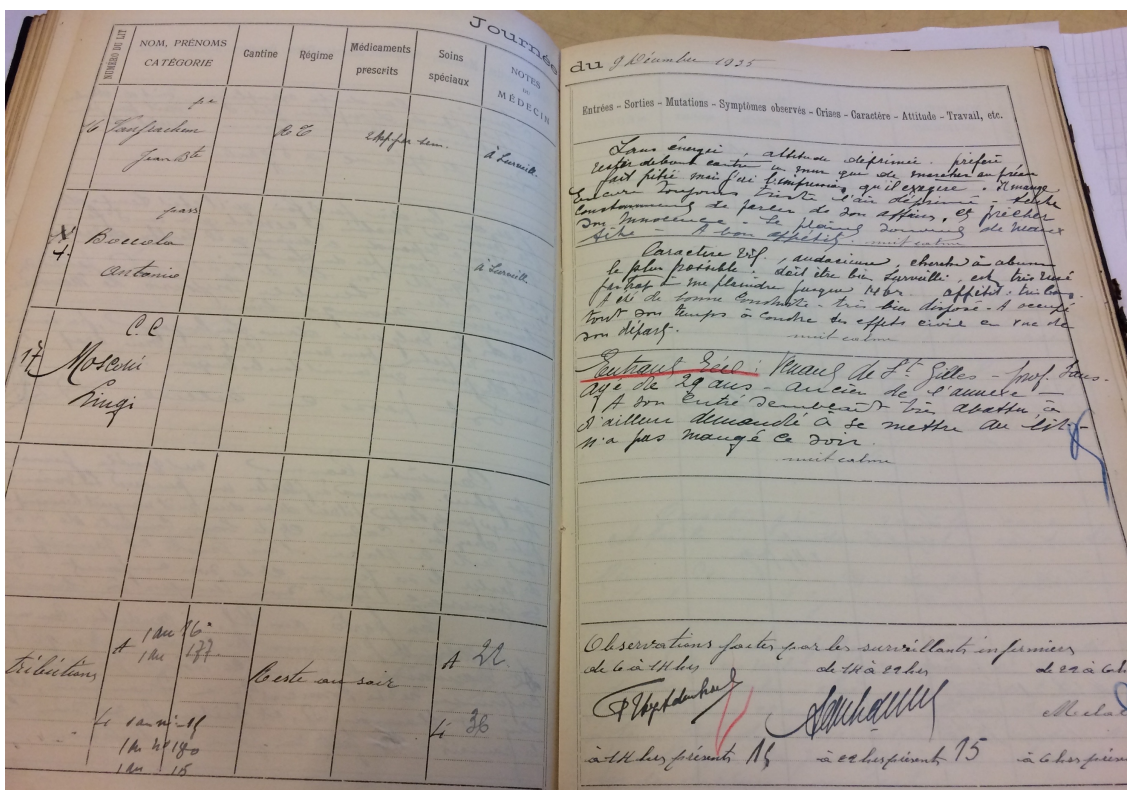 Journée
NUMÉRO DU LIT
NOM, PRÉNOMS
CATÉGORIE
Cantine
Régime
Médicaments
prescrits
Soins
spéciaux
NOTES
DU
MÉDECIN
16
Jean Bte
à Surveiller
Antonio
à Surveiller
C. C
17 Moscoli
A 1 au 16
1 au 177
A 22
Reste au soir
36
1 au 15
du 9 Décembre 1925
Entrées - Sorties - Mutations - Symptômes observés - Crises - Caractère - Attitude - Travail, etc.
Sans énergie, attitude déprimée. préfère
rester debout contre un mur que de marcher au préau
fait pitié mais j'ai l'impression qu'il exagère. Il mange
Encore toujours triste l'air déprimé
constamment de parler de son affaire, et prêcher
son Innocence. Se plaint souvent de maux
tête - A bon appétit. nuit calme
Caractère vif, audacieux, cherche à abuser
le plus possible. doit être bien Surveillé, est très rusé
me plaindre jusque 14 hr. appétit: très bon.
A été de bonne Conduite. très bien disposé. A occupé
tout son temps à coudre ses effets civil en vue de
son départ. nuit calme
Entrant : Venant de St. Gilles - prof. Sans.
âgé de 29 ans - ancien de l'annexe -
A son entré semblant très abattu, a
d'ailleur demandé à se mettre au lit -
n'a pas mangé ce soir.
nuit calme
Observations faites par les surveillants infirmiers
de 6 à 14 hrs de 14 à 22 hrs de 22 à 6 h
à 14 hrs présents 15 à 22 hrs présents 15 à 6 hrs présen